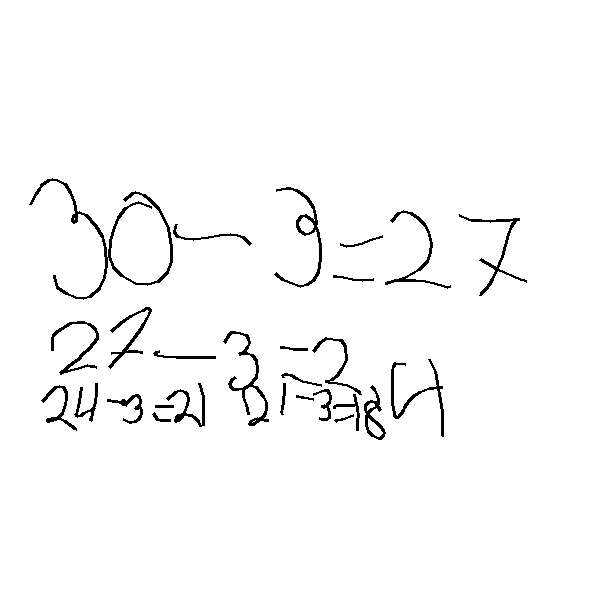 30-3=27
27-3=24
24-3=21 21-3=18